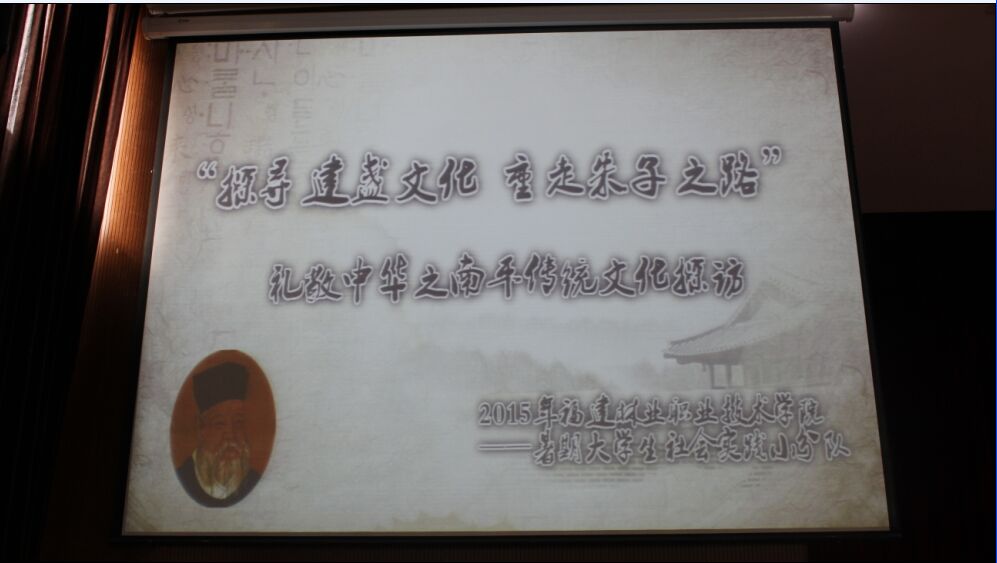 “探寻建盏文化 重走朱子之路”
礼敬中华之南平传统文化探访
2015年福建林业职业技术学院
——暑期大学生社会实践小分队